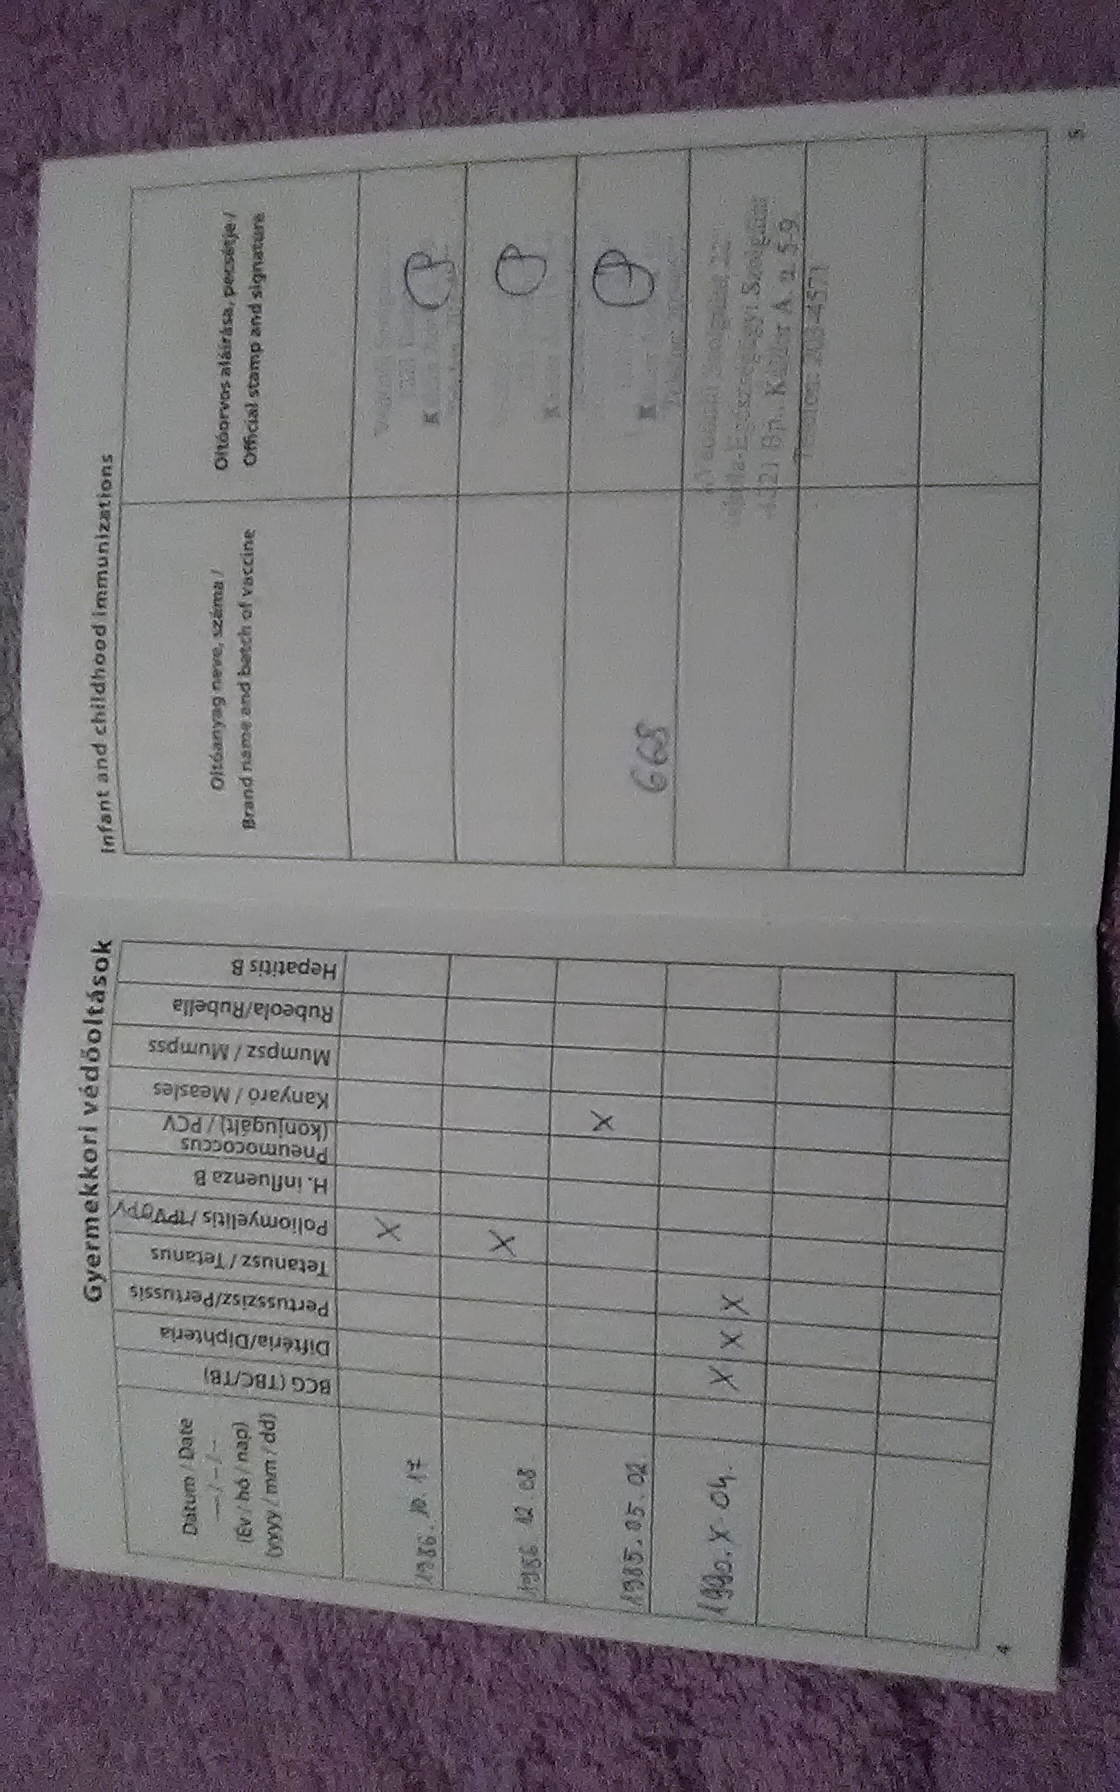 Gyermekkori védőoltások
Dátum / Date
— / – / –
(Év / hó / nap)
(yyyy / mm / dd)
BCG (TBC/TB)
Diftéria/Diphteria
Pertusszisz/Pertussis
Tetanusz / Tetanus
Poliomyelitis / IPV OPV
H. influenza B
Pneumococcus
(konjugált) / PCV
Kanyaró / Measles
Mumpsz / Mumpss
Rubeola/Rubella
Hepatitis B
1986. 10. 17 X
1986 12 08 X
1985. 05. 02 X
1990. X 04. X X X
4
Infant and childhood immunizations
Oltóanyag neve, száma /
Brand name and batch of vaccine
Oltóorvos aláírása, pecsétje /
Official stamp and signature
668
Egészségügyi Szolgálat
Bp., Kähler A. u. 5-9
5